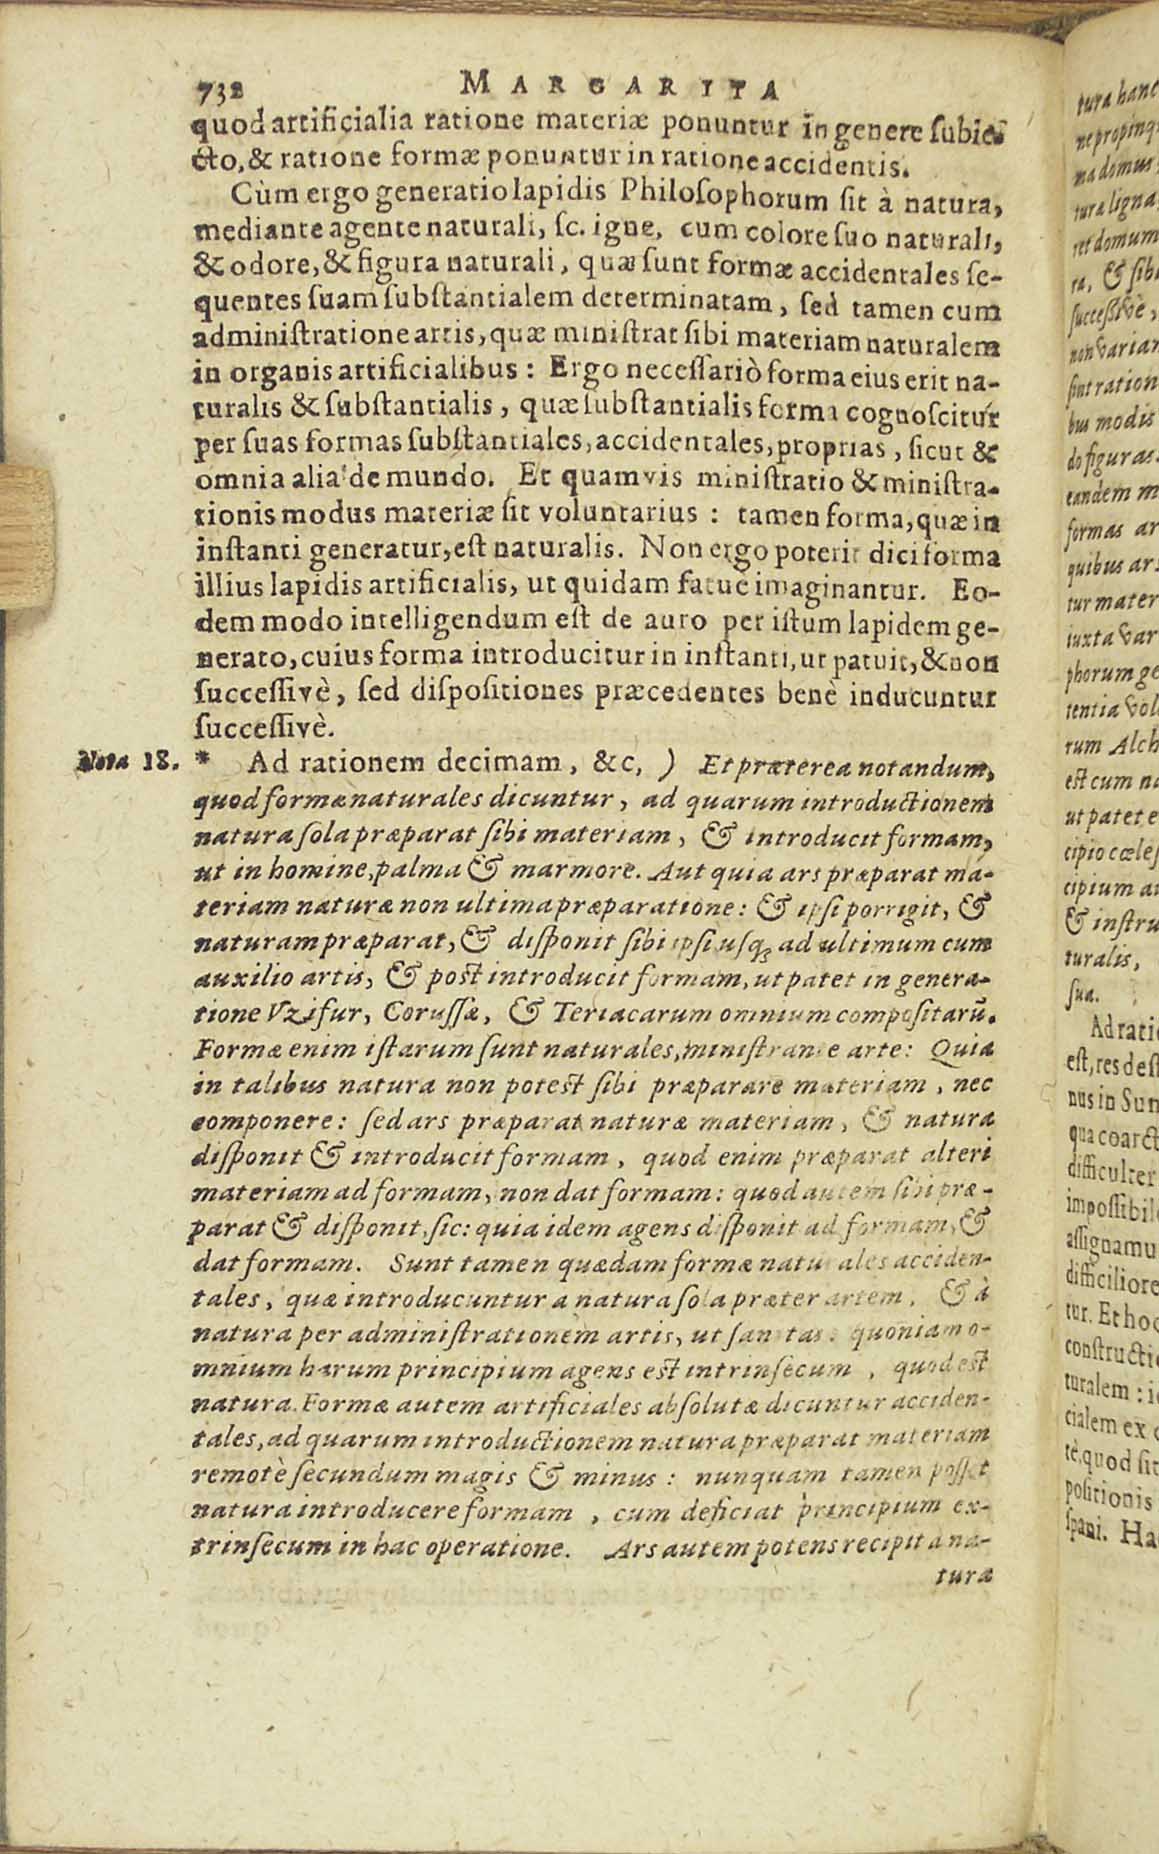 732 MARGARITA
quod artificialia ratione materiæ ponuntur in genere subie-
cto, & ratione formæ ponuntur in ratione accidentis.
Cùm ergo generatio lapidis Philosophorum sit à natura,
mediante agente naturali, sc. igne, cum colore suo naturali,
& odore, & figura naturali, quæ sunt formæ accidentales se-
quentes suam substantialem determinatam, sed tamen cum
administratione artis, quæ ministrat sibi materiam naturalem
in organis artificialibus: Ergo necessariò forma eius erit na-
turalis & substantialis, quæ substantialis forma cognoscitur
per suas formas substantiales, accidentales, proprias, sicut &
omnia alia de mundo. Et quamvis ministratio & ministra-
tionis modus materiæ sit voluntarius: tamen forma, quæ in
instanti generatur, est naturalis. Non ergo poterit dici forma
illius lapidis artificialis, ut quidam fatuè imaginantur. Eo-
dem modo intelligendum est de auro per istum lapidem ge-
nerato, cuius forma introducitur in instanti, ut patuit, & non
successivè, sed dispositiones præcedentes benè inducuntur
successivè.
Nota 18. * Ad rationem decimam, &c, ) Et præterea notandum,
quod formæ naturales dicuntur, ad quarum introductionem
natura sola præparat sibi materiam, & introducit formam,
ut in homine, palma & marmore. Aut quia ars præparat ma-
teriam naturæ non ultima præparatione: & ipsi porrigit, &
naturam præparat, & disponit sibi ipsi usq; ad ultimum cum
auxilio artis, & post introducit formam, ut patet in genera-
tione Vzifur, Cerussæ, & Teriacarum omnium compositarū.
Formæ enim istarum sunt naturales, ministrante arte: Quia
in talibus natura non potest sibi præparare materiam, nec
componere: sed ars præparat naturæ materiam, & natura
disponit & introducit formam, quod enim præparat alteri
materiam ad formam, non dat formam: quod autem sibi præ-
parat & disponit, sic: quia idem agens disponit ad formam, &
dat formam. Sunt tamen quædam formæ naturales acciden-
tales, quæ introducuntur a natura sola præter artem, & à
natura per administrationem artis, ut sanitas: quoniam o-
mnium harum principium agens est intrinsecum, quod est
natura. Formæ autem artificiales absolutæ dicuntur acciden-
tales, ad quarum introductionem natura præparat materiam
remotè secundum magis & minus: nunquam tamen posset
natura introducere formam, cum deficiat principium ex-
trinsecum in hac operatione. Ars autem potens recipit à na-
tura
tura hanc
ne propinq
na domus
tura ligna
ret domum
ra, & sibi
successivè,
non varian
sint ration
bus modis
do figuras
eandem m
formas ar
quibus ars
tur mater
iuxta var
phorum ge
tentia vol
rum Alch
est cum na
ut patet e
cipio cœles
cipium au
& instru
turalis,
sua.
Ad ratio
est, res dest
nus in Sum
qua coarct
difficulter
impossibile
assignamu
difficiliore
tur. Et hoc
constructio
turalem: i
cialem ex
tè, quod sit
positionis
spani. Ha